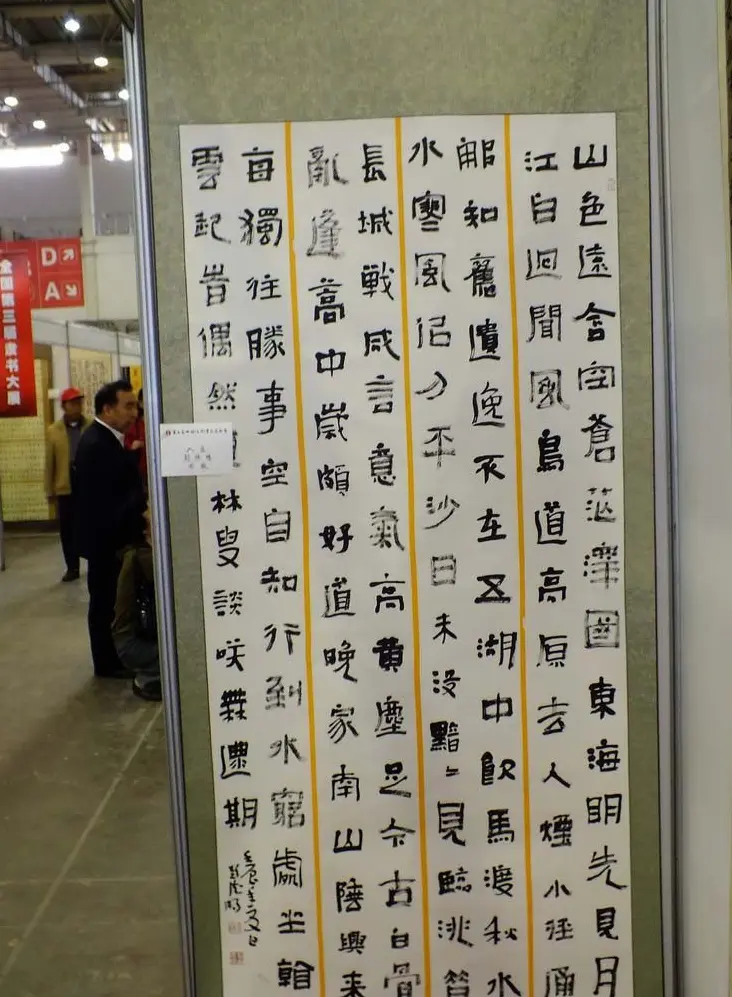 山色遠含空蒼茫澤國東海明先見月
江白迥聞風鳥道高原去人煙小徑通
那知舊遺逸不在五湖中飲馬渡秋水
水寒風似刀平沙日未沒黯々見臨洮昔
長城戰咸言意氣高黃塵足今古白骨
亂蓬蒿中歲頗好道晚家南山陲興來
每獨往勝事空自知行到水窮處坐
雲起旹偶然林叟談咲無還期
壬辰年夏日
D
A
全国第三届隶书大展